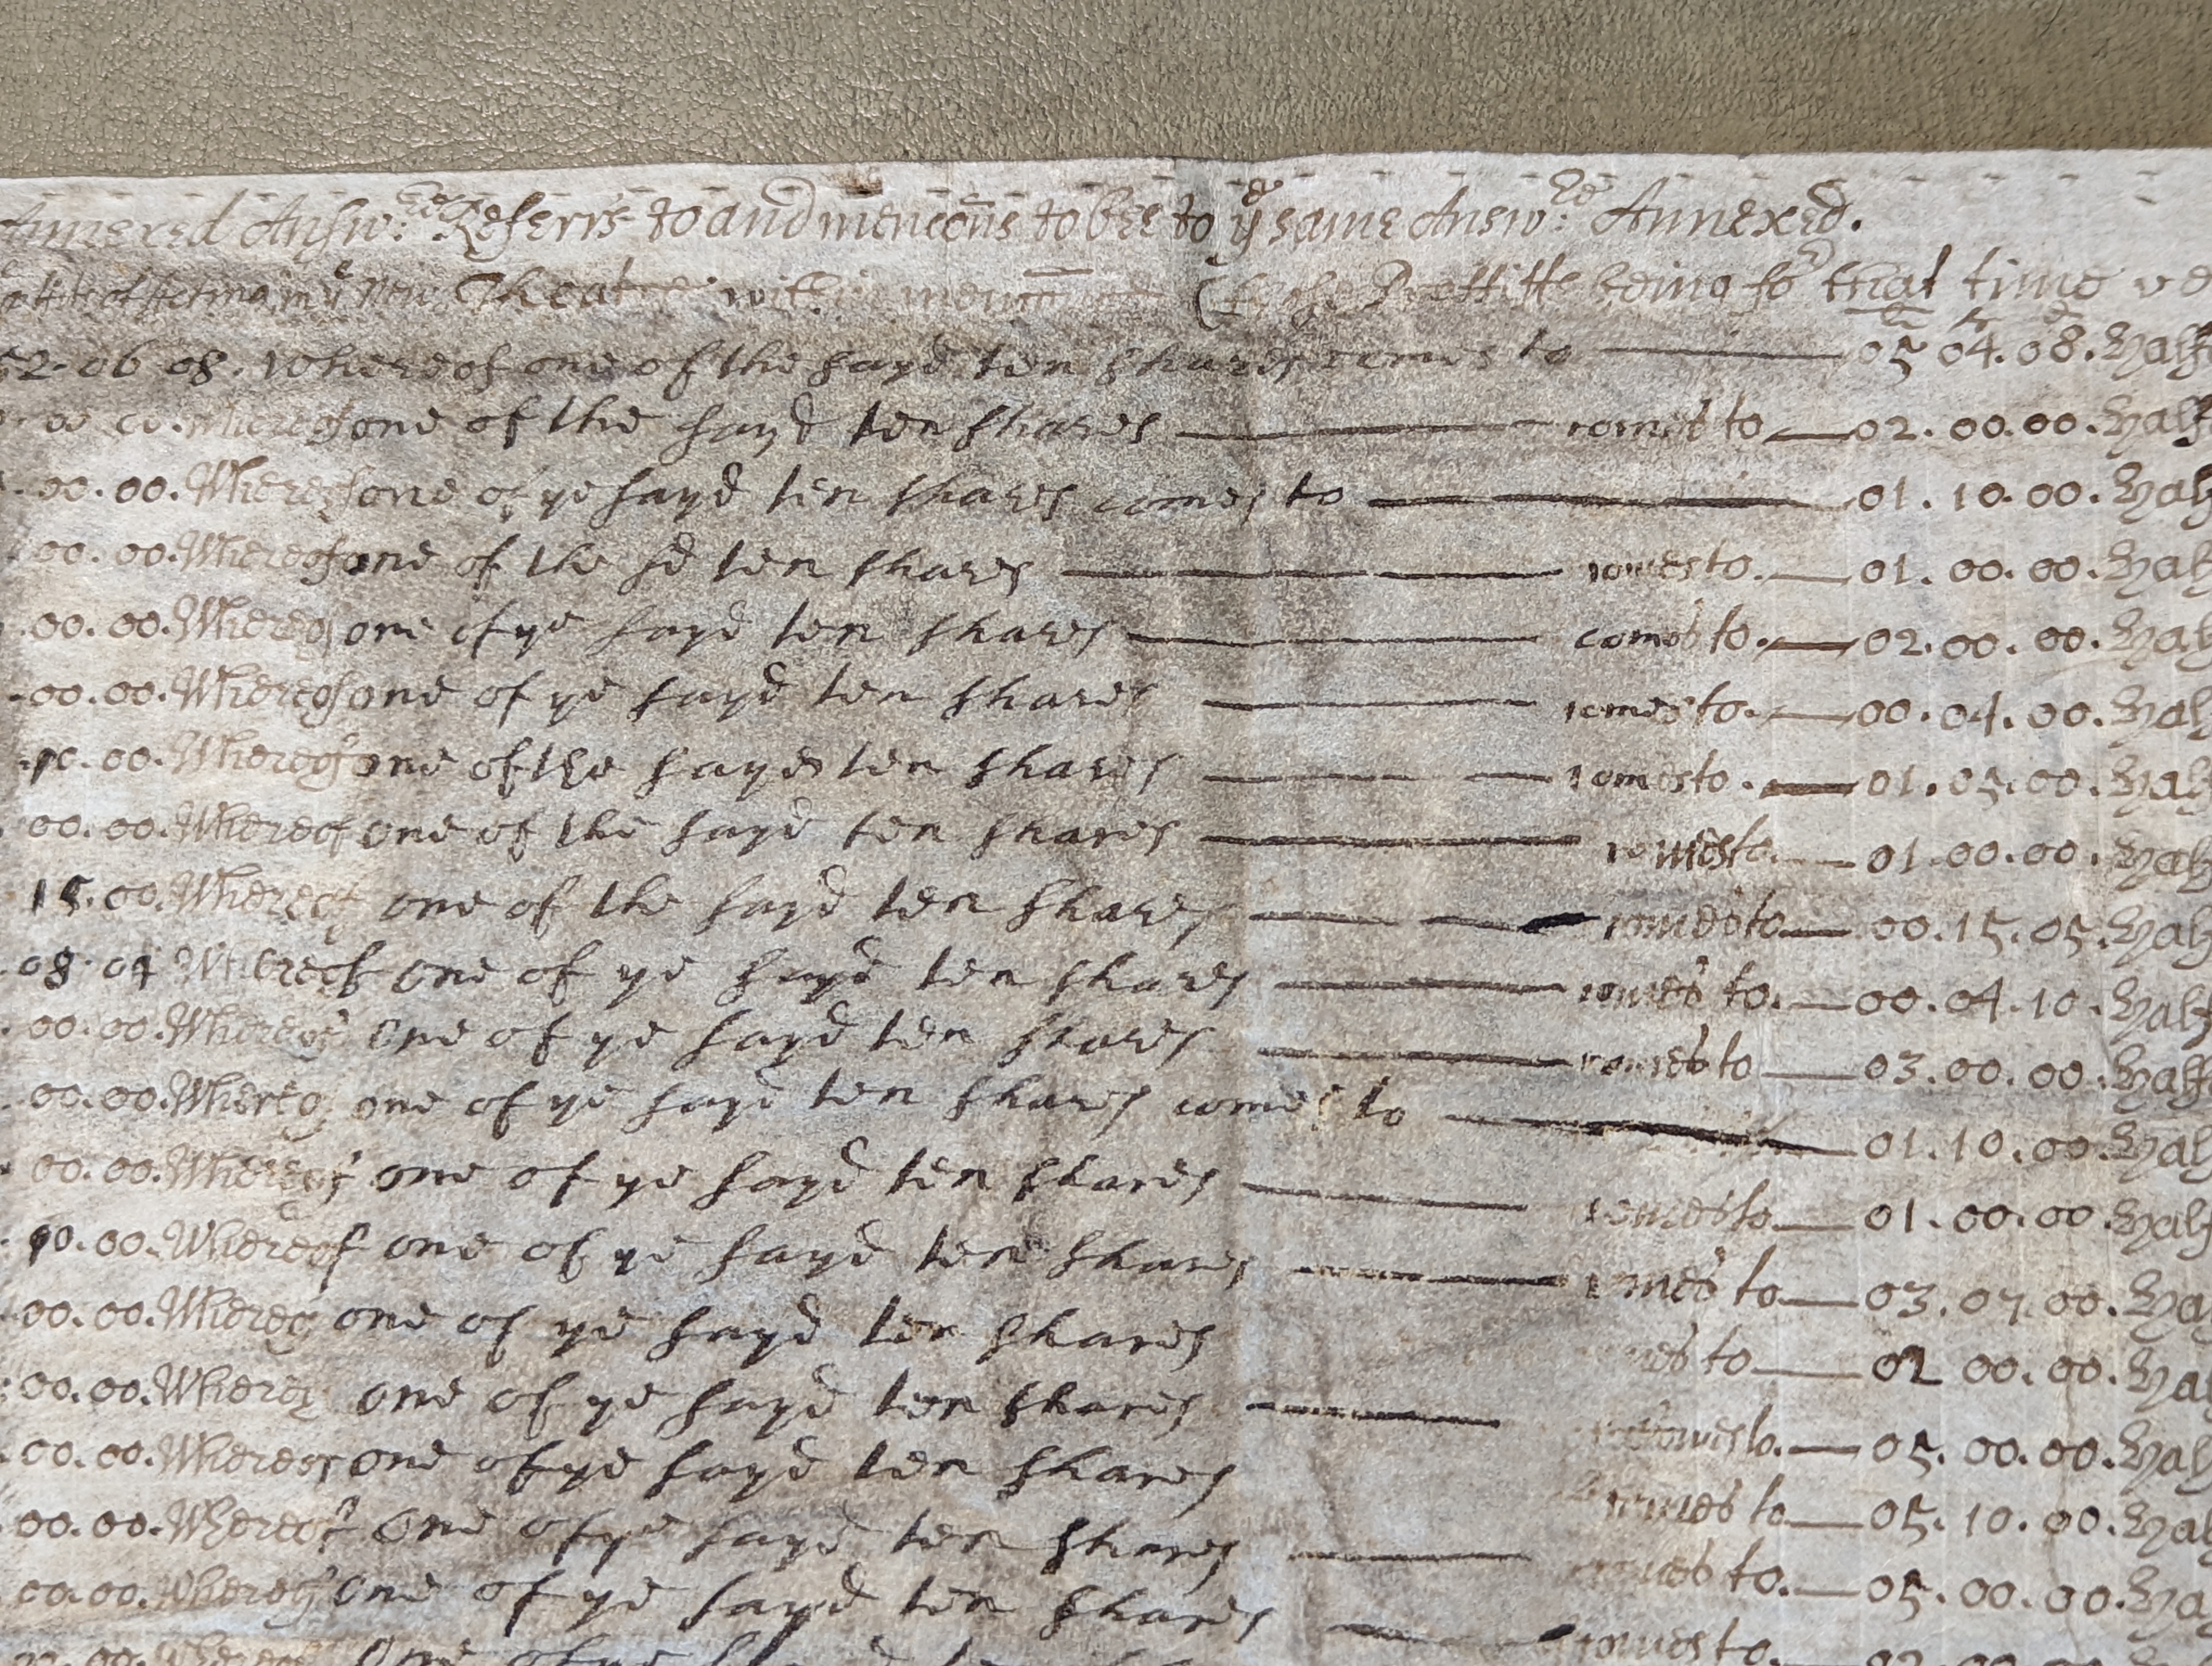 Annexed Answ:re Referrs to and mencons to bee to ye same Answ:re Annexed.
in ye New Theatre being for that time
li s d
52-06 08. Whereof one of the sayd ten shares comes to 05 04. 08. Half
00 00. Whereof one of the sayd ten shares comes to 02. 00. 00. Half
00. 00. Whereof one of ye sayd ten shares comes to 01. 10. 00. Half
00. 00. Whereof one of the sd ten shares comes to. 01. 00. 00. Half
00. 00. Whereof one of ye sayd ten shares comes to. 02. 00. 00. Half
00. 00. Whereof one of ye sayd ten shares comes to. 00. 04. 00. Half
10. 00. Whereof one of the sayd ten shares comes to. 01. 05. 00. Half
00. 00. Whereof one of the sayd ten shares comes to. 01. 00. 00. Half
15. 00. Whereof one of the sayd ten shares comes to 00. 15. 05. Half
08. 04 Whereof one of ye sayd ten shares comes to. 00. 04. 10. Half
00. 00. Whereof one of ye sayd ten shares comes to 03. 00. 00. Half
00. 00. Whereof one of ye sayd ten shares comes to 01. 10. 00. Half
00. 00. Whereof one of ye sayd ten shares comes to 01. 00. 00. Half
10. 00. Whereof one of ye sayd ten shares comes to 03. 07. 00. Half
00. 00. Whereof one of ye sayd ten shares comes to 02 00. 00. Half
00. 00. Whereof one of ye sayd ten shares comes to. 05. 00. 00. Half
00. 00. Whereof one of ye sayd ten shares comes to 05. 10. 00. Half
00. 00. Whereof one of ye sayd ten shares comes to. 05. 00. 00. Half
00. 00. Whereof one of ye sayd ten shares comes to.
00. Whereof one of ye